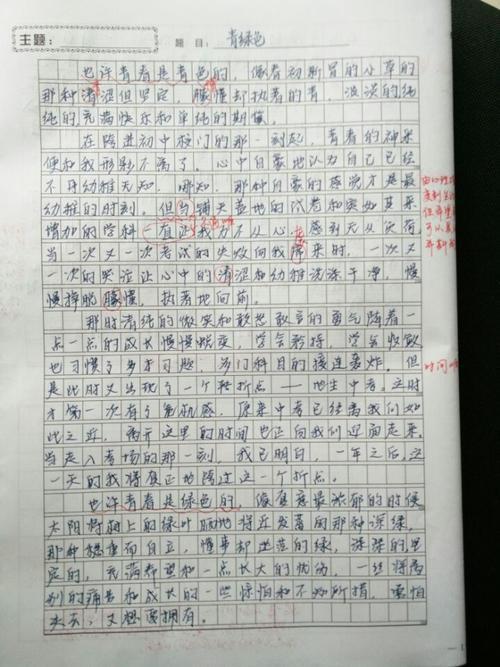 主题：
题目：青绿色
也许青春是青色的，像春初刚冒的小草的
那种清涩但坚定，朦懂却执着的青，淡淡的纯
纯的充满快乐和单纯的期像
在跨进初中校门的那一刻起，青春的神采
便和我形影不离了。心中自豪地认为自己已经
不再幼稚无知，哪知，那种自豪的感觉才是最
幼稚的时刻。但当铺天盖地的试卷和突如其来
增加的学科一百让我力不从心，感到无从负荷
当一次又一次考试的失败向我席来时，一次又
一次的哭泣让心中的清涩和幼稚洗涤干净，慢
慢挣脱朦懂，执着地向前。
那时青纯的微笑和敢想敢言的勇气随着一
点一点的成长慢慢蜕变，学会矜持，学会收敛
也习惯了多方习题，多门科目的接连轰炸。但
是此时又出现了一个转折点——地生中考。这时
才第一次有了危机感，原来中考已经离我们如
此之近，离开这里的时间也正向我们迎面走来。
当走入考场的那一刻，我已明白，一年之后，这
一天的我将复正地跨过这一个折点。
也许青春是绿色的，像夏意最浓郁的时候
太阳将树上的绿叶晒地将近发蓝的那种深绿，
那种稳重而自立，懂事却迷茫的绿，深深的坚
定的，充满希望和一点长大的忧伤，一丝将离
别的痛苦和成长的一些惊怕和不知所措，害怕
失去，又想要拥有。
时间